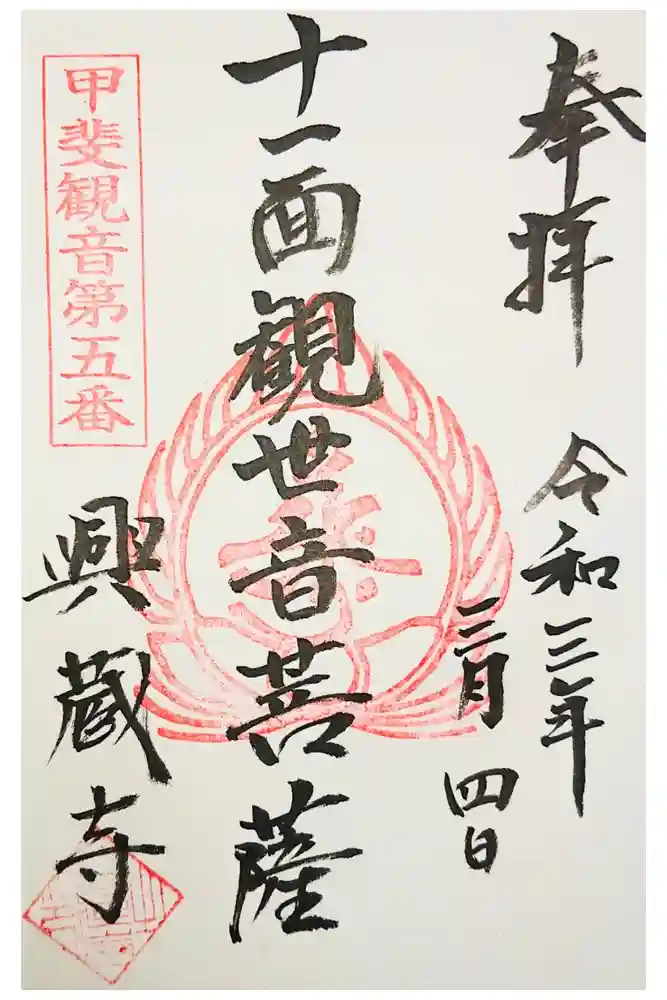 奉拝
令和三年
三月
四日
十一面観世音菩薩
甲斐観音第五番
興蔵寺